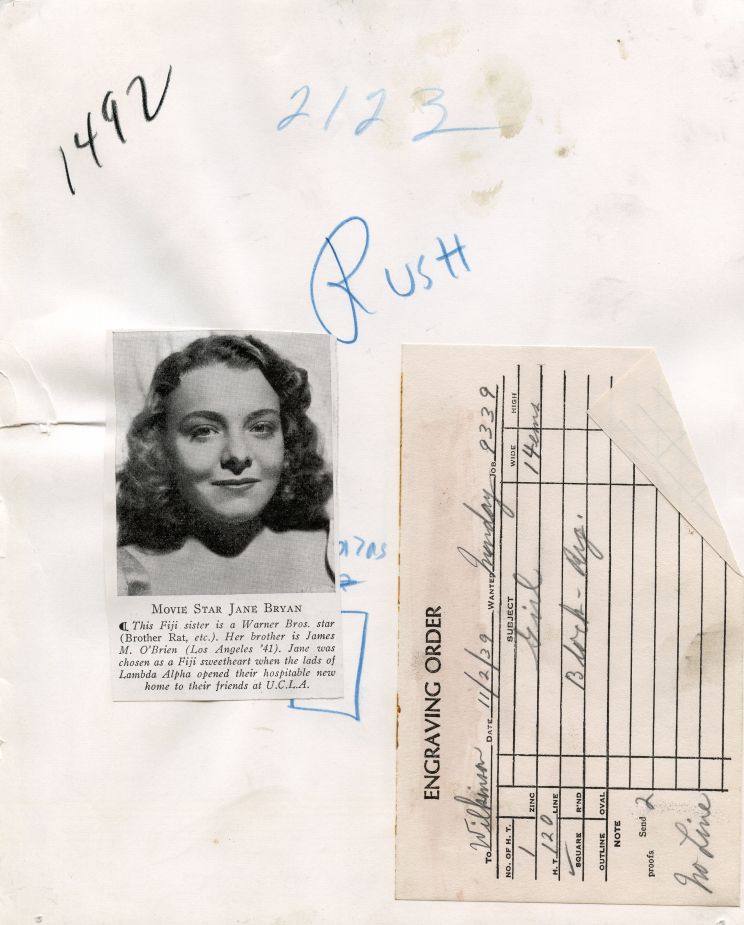 1492
2123
RUSH
MOVIE STAR JANE BRYAN
¶ This Fiji sister is a Warner Bros. star
(Brother Rat, etc.). Her brother is James
M. O'Brien (Los Angeles '41). Jane was
chosen as a Fiji sweetheart when the lads of
Lambda Alpha opened their hospitable new
home to their friends at U.C.L.A.
ENGRAVING ORDER
TO Wilkinson DATE 11/2/39 WANTED Sunday JOB 9339
NO. OF H. T. ZINC SUBJECT WIDE HIGH
1 Girl 14ems
H. T. 120 LINE
SQUARE R'ND Block - Aug.
OUTLINE OVAL
NOTE
Send 2
proofs
No Line